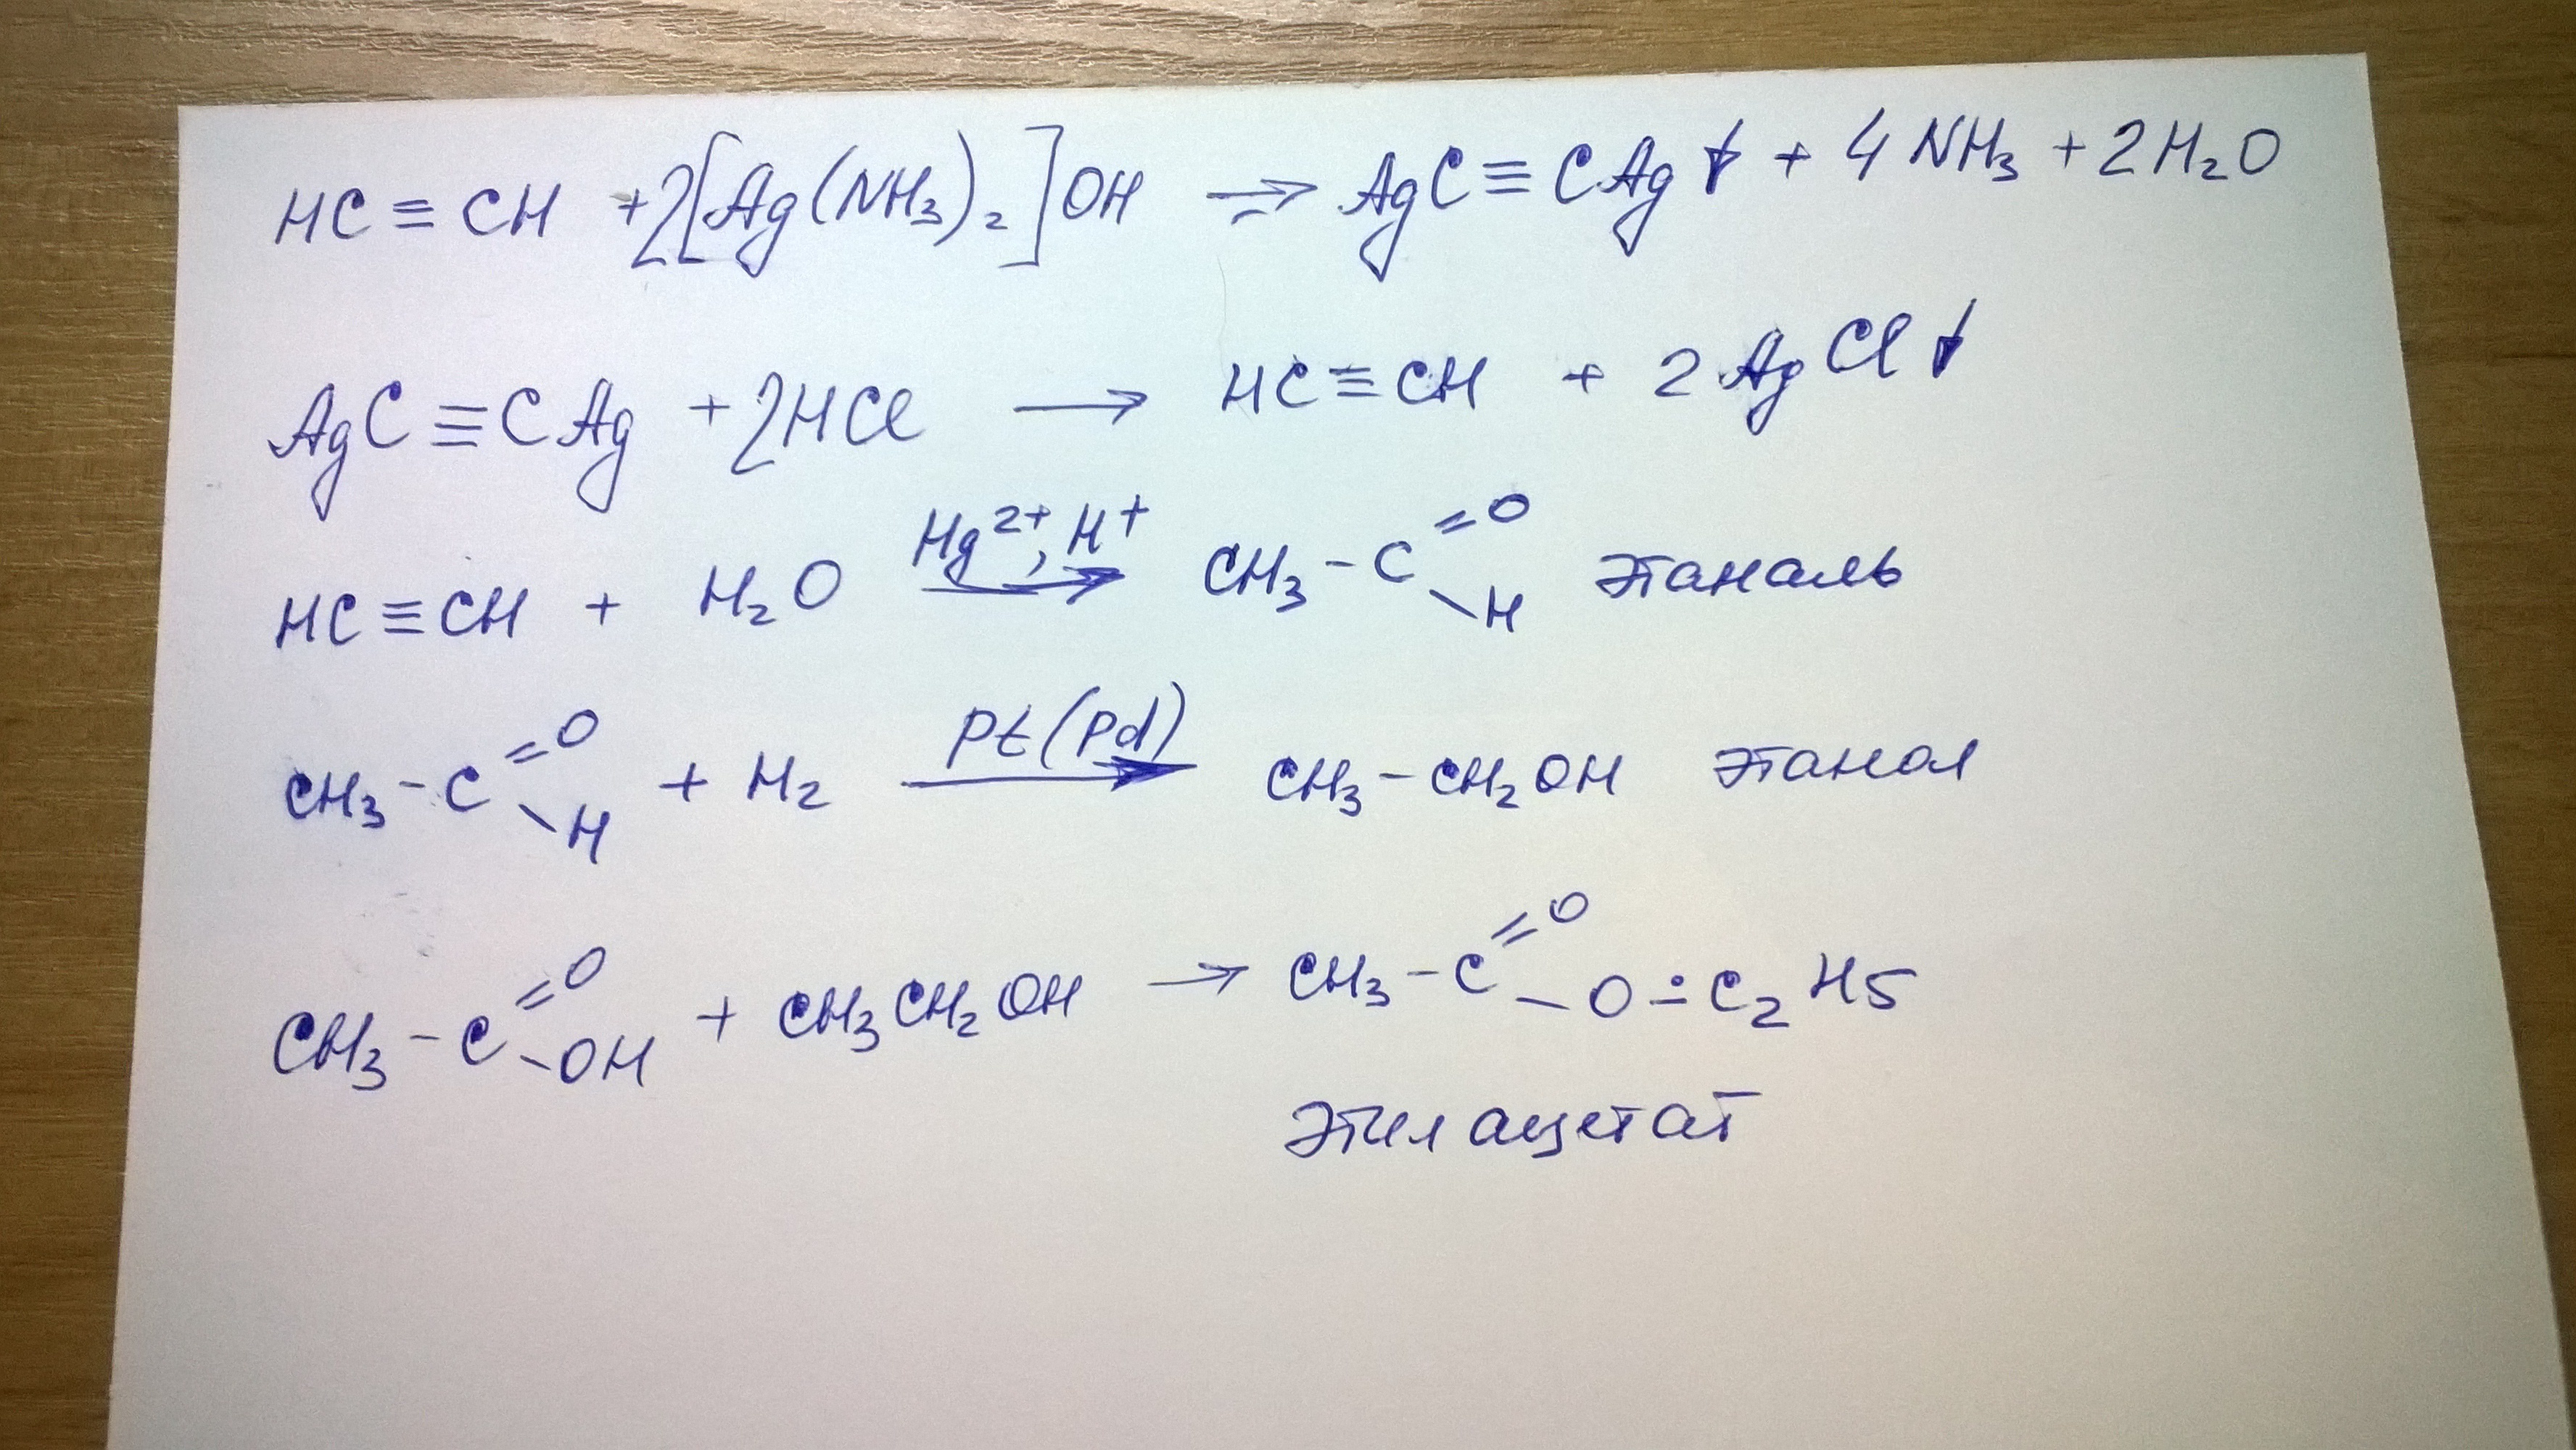 HC ≡ CH + 2[Ag(NH₃)₂]OH → AgC ≡ CAg↓ + 4NH₃ + 2H₂O
AgC ≡ CAg + 2HCl → HC ≡ CH + 2AgCl↓
HC ≡ CH + H₂O —Hg²⁺, H⁺→ CH₃-C(=O)-H этаналь
CH₃-C(=O)-H + H₂ —Pt(Pd)→ CH₃-CH₂OH этанол
CH₃-C(=O)-OH + CH₃CH₂OH → CH₃-C(=O)-O-C₂H5
этилацетат